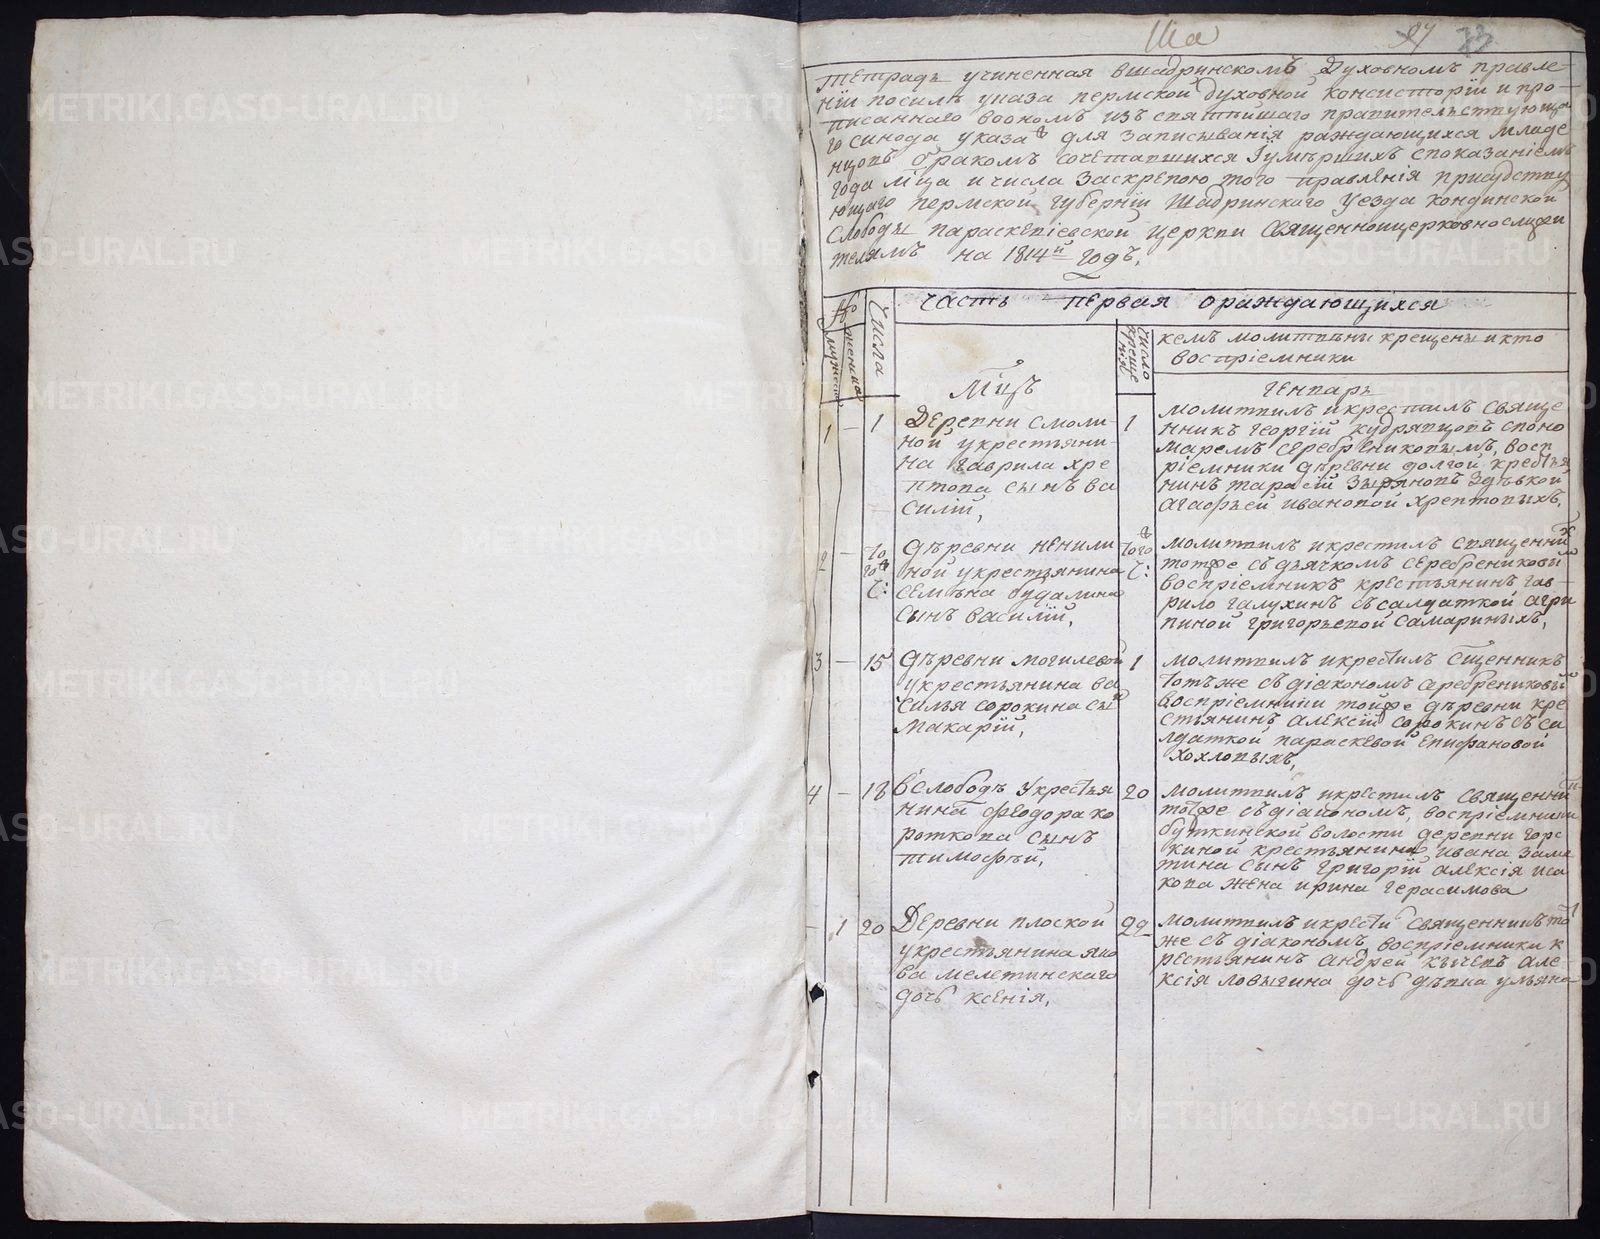 Ша 97 73
тетрадь учиненная вшадринскомъ Духовномъ правле-
нїи посилѣ указа пермской духовной консисторїи и про-
писаннаго воономъ изъ святѣйшаго правительствующа
го синода указа для записыванїя раждающихся младе
нцовъ бракомъ сочетавшихся Їумѣршихъ споказанїемъ
года мїца и числа заскрепою того правленїя присудству
ющаго пермской губернїи Шадринскаго уезда кондинской
слободы параскевїевской церкви священноицерковнослужи
телямъ на 1814й годъ.
часть первая ораждающихся
№ мужеска женска числа
Мїцъ
число крещенїя
кемъ молитвены крещены икто
воспрїемники
Генварь
1 — 1
Деревни смоли-
ной укрестьяни-
на гаврила хре
птова сынъ ва
силїй,
1
молитвилъ икрестилъ свяще
нникъ георгїй кудрявцовъ споно
маремъ серебрениковымъ, восп
рїемники деревни долгой крестья
нинъ тарасїй зыряновъ здѣвкой
агафьей ивановой хрептовыхъ,
2 — того ч:
дѣревни ненили
ной укрестьянина
семена будалина
сынъ василїй,
того ч:
молитвилъ икрестилъ священникъ
тотже съдьячкомъ серебрениковым
воспрїемникъ крестьянинъ гав-
рило галухинъ съсалдаткой агри
пиной григорьевой самариныхъ,
3 — 15
дѣревни могилевой
укрестьянина ва
силья сорокина сынъ
макарїй,
1
молитвилъ икрестилъ Сщенникъ
тотъже съдїакономъ сребрениковым
воспрїемники тойже дѣревни кре
стьянинъ алексїй сорокинъ съса
лдаткой параскевой епифановой
хохловыхъ,
4 — 18
вслободѣ укрестья
нина феодора ко
роткова сынъ
тимофѣй,
20
молитвилъ икрестилъ священникъ
тотже съдїакономъ, воспрїемники
буткинской волости деревни горс
киной крестьянина ивана заме
тина сынъ григорїй алексїя иса
кова жена ирина герасимова
— 1 20
Деревни плоской
укрестьянина яко
ва мелетинскаго
дочь ксенїя,
22
молитвилъ икрести священникъ тот
же съ дїакономъ воспрїемники к
рестьянинъ андрей къчевъ але-
ксїя ловыгина дочь дѣвка ульяна
METRIKI.GASO-URAL.RU